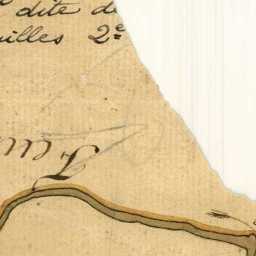 dite d
uilles 2e
Feu